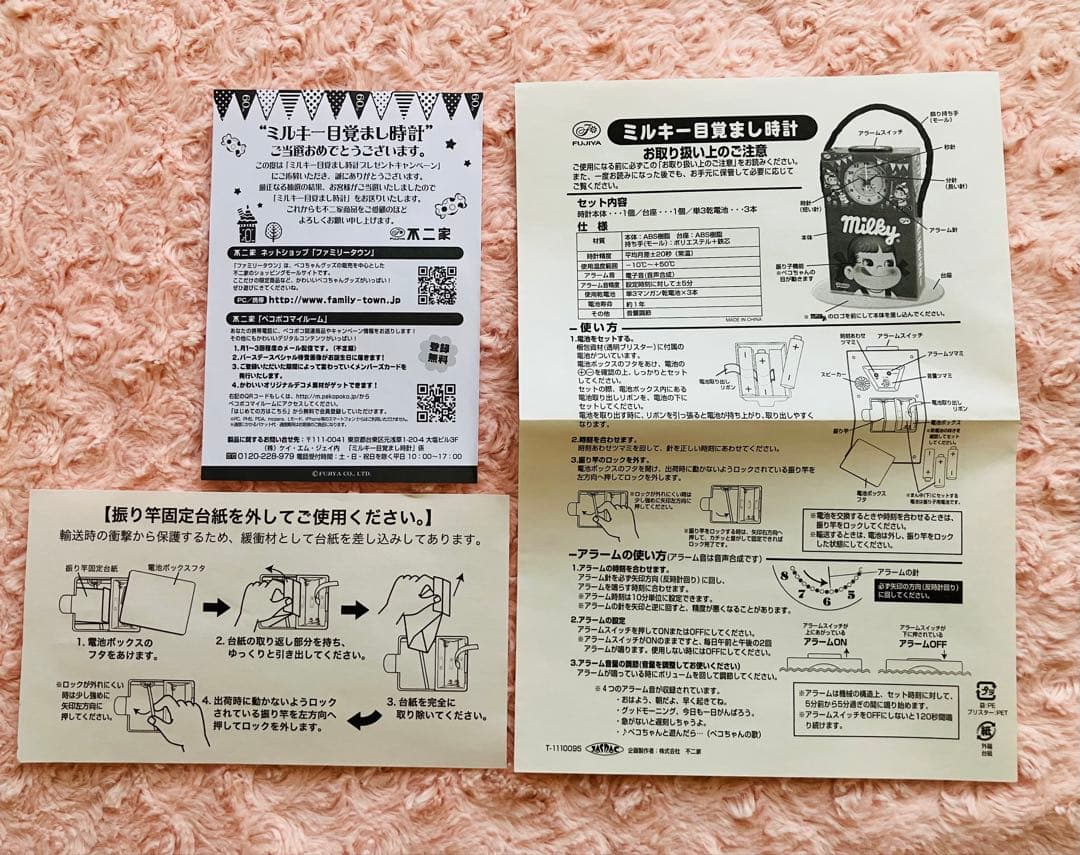 60
60
"ミルキー目覚まし時計"
ご当選おめでとうございます。
この度は「ミルキー目覚まし時計プレゼントキャンペーン」
にご応募いただき、誠にありがとうございます。
厳正なる抽選の結果、お客様がご当選いたしましたので
「ミルキー目覚まし時計」をお送りいたします。
これからも不二家商品をご愛顧のほど
よろしくお願い申し上げます。
不二家
不二家 ネットショップ「ファミリータウン」
「ファミリータウン」は、ペコちゃんグッズの販売を中心とした
不二家のショッピングモールサイトです。
ここだけの限定商品など、かわいいペコちゃんグッズがいっぱい!
ぜひ遊びにきてくださいね。
PC/携帯 http://www.family-town.jp
不二家「ペコポコマイルーム」
あなたの携帯電話に、ペコポコ関連商品やキャンペーン情報をお送りします!
その他にもかわいいデジタルコンテンツがいっぱい!
1.月1~3回程度のメール配信です。(不定期)
2.バースデースペシャル待受画像がお誕生日に届きます!
3.ご登録いただいた期間によって変わっていくメンバーズカードを
発行いたします。
4.かわいいオリジナルデコメ素材がゲットできます!
登録
無料
右記のQRコードもしくは、http://m.pekopoko.jp/から
ペコポコマイルームにアクセスしてください。
「はじめての方はこちら」から無料で会員登録していただけます。
製品に関するお問い合せ先:〒111-0041 東京都台東区元浅草1-20-4 大塩ビル3F
(株)ケイ・エム・ジェイ内 「ミルキー目覚まし時計」係
0120-228-979 電話受付時間:土・日・祝日を除く平日10:00~17:00
©FUJIYA CO., LTD.
【振り竿固定台紙を外してご使用ください。】
輸送時の衝撃から保護するため、緩衝材として台紙を差し込みしてあります。
振り竿固定台紙
電池ボックスフタ
1. 電池ボックスの
フタをあけます。
2. 台紙の取り返し部分を持ち、
ゆっくりと引き出してください。
3. 台紙を完全に
取り除いてください。
4. 出荷時に動かないようロック
されている振り竿を左方向へ
押してロックを外します。
※ロックが外れにくい
時は少し強めに
矢印左方向に
押してください。
FUJIYA
ミルキー目覚まし時計
お取り扱い上のご注意
ご使用になる前に必ずこの「お取り扱い上のご注意」をお読みください。
また、一度お読みになった後でも、お手元に保管して必要に応じて
ご覧ください。
セット内容
時計本体・・・1個/台座・・・1個/単3乾電池・・・3本
仕 様
材質 本体:ABS樹脂 台座:ABS樹脂
持ち手(モール):ポリエステル+鉄芯
時計精度 平均月差±20秒(常温)
使用温度範囲 -10℃~+50℃
アラーム音 電子音(音声合成)
アラーム音精度 設定時刻に対して±5分
使用乾電池 単3マンガン乾電池×3本
電池寿命 約1年
その他 音量調節
MADE IN CHINA
飾り持ち手
(モール)
アラームスイッチ
秒針
分針
(長い針)
時針
(短い針)
アラーム針
振り子機能
※ペコちゃんの
目が動きます
台座
Milky
のロゴを前にして本体を差し込んでください。
使い方
1.電池をセットする。
梱包資材(透明ブリスター)に付属の
電池がついています。
電池ボックスのフタをあけ、電池の
⊕⊖を確認の上、しっかりとセット
してください。
セットの際、電池ボックス内にある
電池取り出しリボンを、電池の下に
セットしてください。
電池を取り出す時に、リボンを引っ張ると電池が持ち上がり、取り出しやすく
なります。
電池取り出し
リボン
時刻あわせ
ツマミ
アラームスイッチ
アラームツマミ
スピーカー
音量ツマミ
電池取り出し
リボン
振り竿
電池ボックス
電池ボックス
フタ
※まん中(下)にセットする
電池は振り子用電池です。
2.時刻を合わせます。
時刻あわせツマミを回して、針を正しい時刻にあわせてください。
3.振り竿のロックを外す。
電池ボックスのフタを開け、出荷時に動かないようロックされている振り竿を
左方向へ押してロックを外します。
※ロックが外れにくい時は
少し強めに矢印左方向に
押してください。
※振り竿をロックする時は、矢印右方向へ
押して、カチッと音がして固定できれば
ロック完了です。
※電池を交換するときや時刻を合わせるときは、
振り竿をロックしてください。
※輸送するときは、電池は外し、振り竿をロック
した状態にしてください。
アラームの使い方(アラーム音は音声合成です)
1.アラームの時刻を合わせます。
アラーム針を必ず矢印方向(反時計回り)に回し、
アラームを鳴らす時刻に合わせます。
※アラーム時刻は10分単位に設定できます。
※アラームの針を矢印と逆に回すと、精度が悪くなることがあります。
8
7
6
5
アラームの針
必ず矢印の方向(反時計回り)
に回してください。
2.アラームの設定
アラームスイッチを押してONまたはOFFにしてください。
※アラームスイッチがONのままですと、毎日午前と午後の2回
アラームが鳴ります。使用しない時にはOFFにしてください。
アラームスイッチが
上にあがっている
アラームON
アラームスイッチが
下に押されている
アラームOFF
3.アラーム音量の調節(音量を調整してお使いください)
アラームが鳴っている時にボリュームを回して調節してください。
※4つのアラーム音が収録されています。
・おはよう、朝だよ、早く起きてね。
・グッドモーニング、今日も一日がんばろう。
・急がないと遅刻しちゃうよ。
・♪ペコちゃんと遊んだら…(ペコちゃんの歌)
※アラームは機械の構造上、セット時刻に対して、
5分前から5分過ぎの間に鳴り始めます。
※アラームスイッチをOFFにしないと120秒間鳴
り続けます。
プラ
袋:PE
ブリスター:PET
紙
外箱
台紙
T-1110095
企画製作者:株式会社 不二家